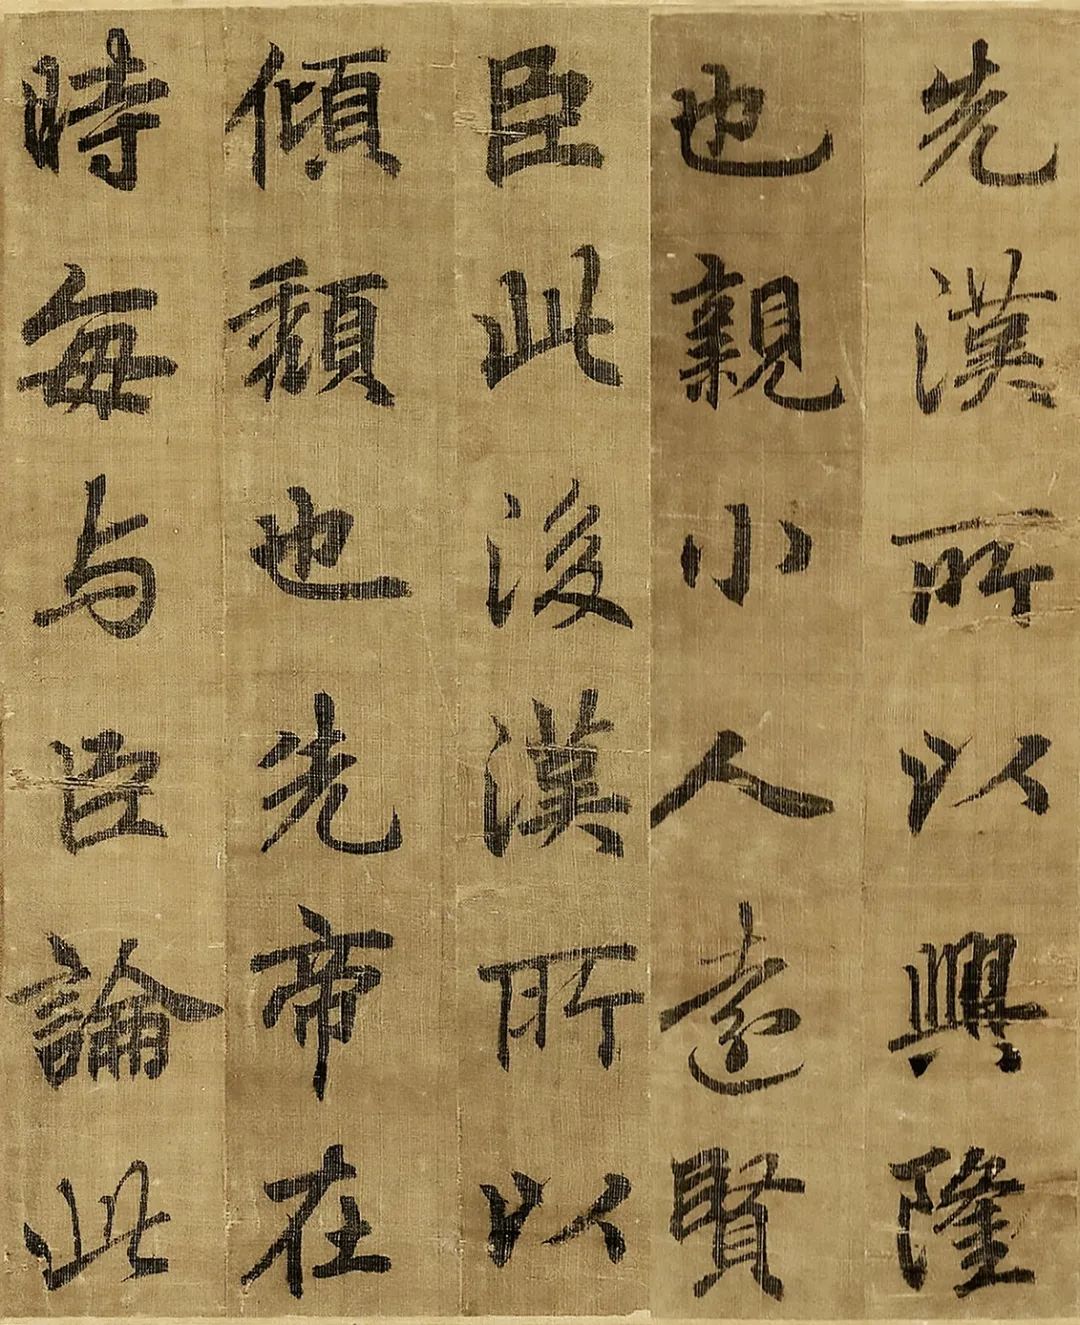 先漢所以興隆
也親小人遠賢
臣此後漢所以
傾頹也先帝在
時每与臣論此